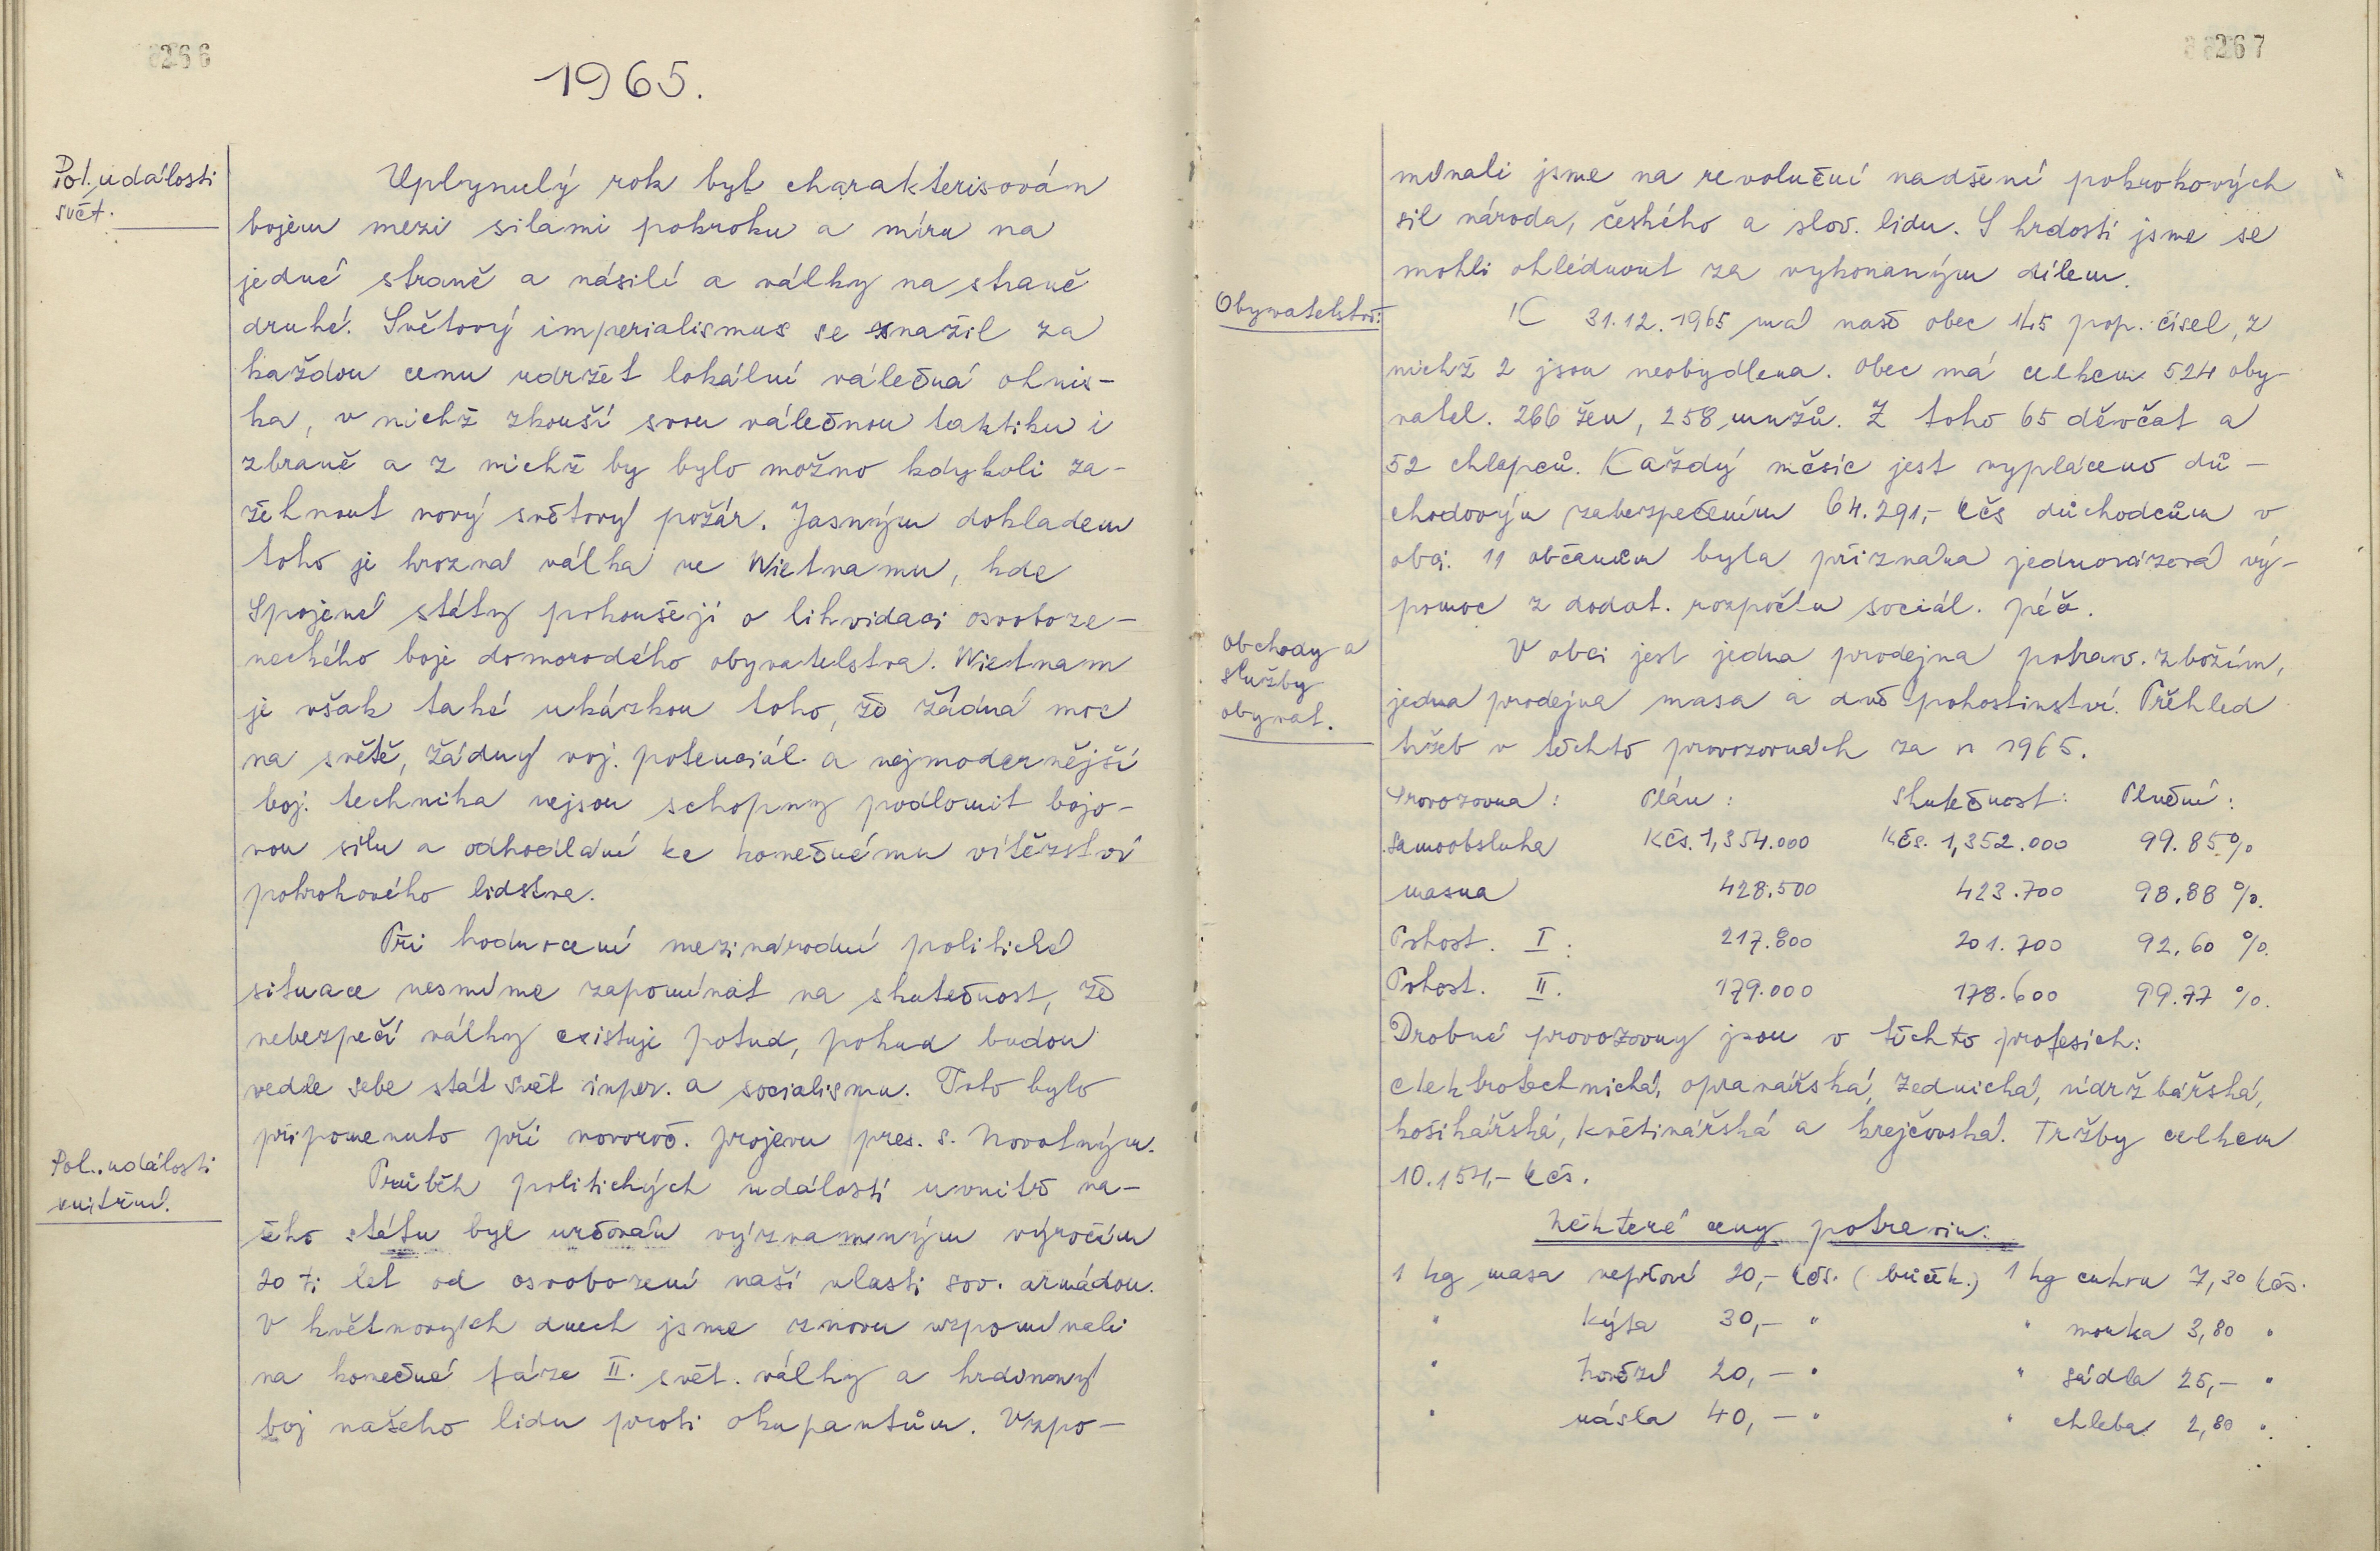 266
1965.
Pol. události
svět.
Uplynulý rok byl charakterisován
bojem mezi silami pokroku a míru na
jedné straně a násilí a války na straně
druhé. Světový imperialismus se snažil za
každou cenu udržet lokální válečná ohnis-
ka, v nichž zkouší svou válečnou taktiku i
zbraně a z nichž by bylo možno kdykoli za-
žehnout nový světový požár. Jasným dokladem
toho je hrozná válka ve Wietnamu, kde
Spojené státy pokoušejí o likvidaci osvoboze-
neckého boje domorodého obyvatelstva. Wietnam
je však také ukázkou toho, že žádná moc
na světě, žádný voj. potenciál a nejmodernější
boj. technika nejsou schopny podlomit bojo-
vou sílu a odhodlání ke konečnému vítězství
pokrokového lidstva.
Při hodnocení mezinárodní politické
situace nesmíme zapomínat na skutečnost, že
nebezpečí války existuje potud, pokud budou
vedle sebe stát svět imper. a socialismu. Toto bylo
připomenuto při novoroč. projevu pres. s. Novotným.
Pol. události
vnitřní.
Průběh politických událostí uvnitř na-
šeho státu byl určován významným výročím
20 ti let od osvobození naší vlasti sov. armádou.
V květnových dnech jsme znovu vzpomínali
na konečné fáze II. svět. války a hrdinný
boj našeho lidu proti okupantům. Vzpo-
267
mínali jsme na revoluční nadšení pokrokových
sil národa, českého a slov. lidu. S hrdostí jsme se
mohli ohlédnout za vykonaným dílem.
Obyvatelstvo:
K 31.12.1965 má naše obec 145 pop. čísel, z
nichž 2 jsou neobydlena. Obec má celkem 524 oby-
vatel. 266 žen, 258 mužů. Z toho 65 děvčat a
52 chlapců. Každý měsíc jest vypláceno dů-
chodovým zabezpečením 64.291,- Kčs důchodcům v
obci. 11 občanům byla přiznána jednorázová vý-
pomoc z dodat. rozpočtu sociál. péče.
Obchody a
služby
obyvat.
V obci jest jedna prodejna potrav. zbožím,
jedna prodejna masa a dvě pohostinství. Přehled
tržeb v těchto provozovnách za r. 1965.
Provozovna: Plán: Skutečnost: Plnění:
Samoobsluha Kčs. 1,354.000 Kčs. 1,352.000 99.85%
masna 428.500 423.700 98.88 %.
Pohost. I: 217.800 201.700 92.60 %.
Pohost. II. 179.000 178.600 99.77 %.
Drobné provozovny jsou v těchto profesích:
elektrotechnická, opravářská, zednická, údržbářská,
košíkářská, květinářská a krejčovská. Tržby celkem
10.154,- Kčs.
Některé ceny potravin:
1 kg masa vepřové 20,- Kčs. (bůček.) 1 kg cukru 7,30 Kčs.
" kýta 30,- " " mouka 3,80 "
" hovězí 20,- " " sádla 25,- "
" másla 40,- " " chleba 2,80 ".